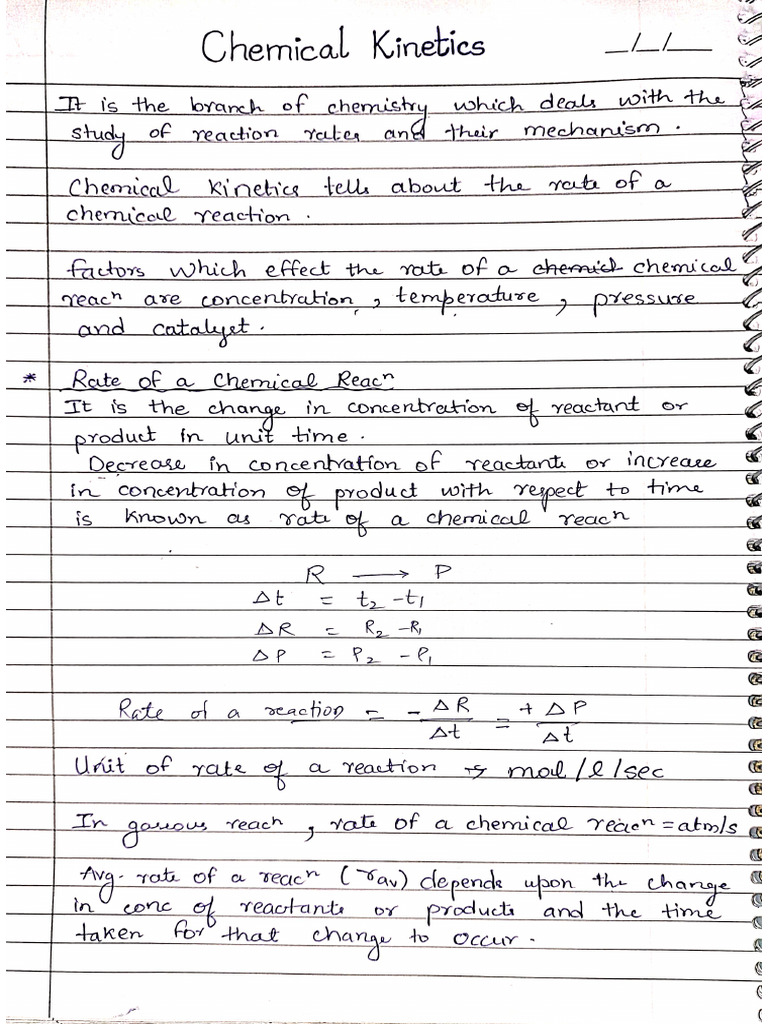 Chemical Kinetics _/_/_
It is the branch of chemistry which deals with the
study of reaction rates and their mechanism.
Chemical kinetics tells about the rate of a
chemical reaction.
factors which effect the rate of a chemicl chemical
reacⁿ are concentration, temperature, pressure
and catalyst.
* Rate of a Chemical Reacⁿ
It is the change in concentration of reactant or
product in unit time.
Decrease in concentration of reactants or increase
in concentration of product with respect to time
is known as rate of a chemical reacⁿ
R ⟶ P
Δt = t₂ - t₁
ΔR = R₂ - R₁
ΔP = P₂ - P₁
Rate of a reaction = - ΔR/Δt = + ΔP/Δt
Unit of rate of a reaction → mol/l/sec
In gaseous reacⁿ, rate of a chemical reacⁿ = atm/s
Avg. rate of a reacⁿ (rav) depends upon the change
in conc of reactants or products and the time
taken for that change to occur.